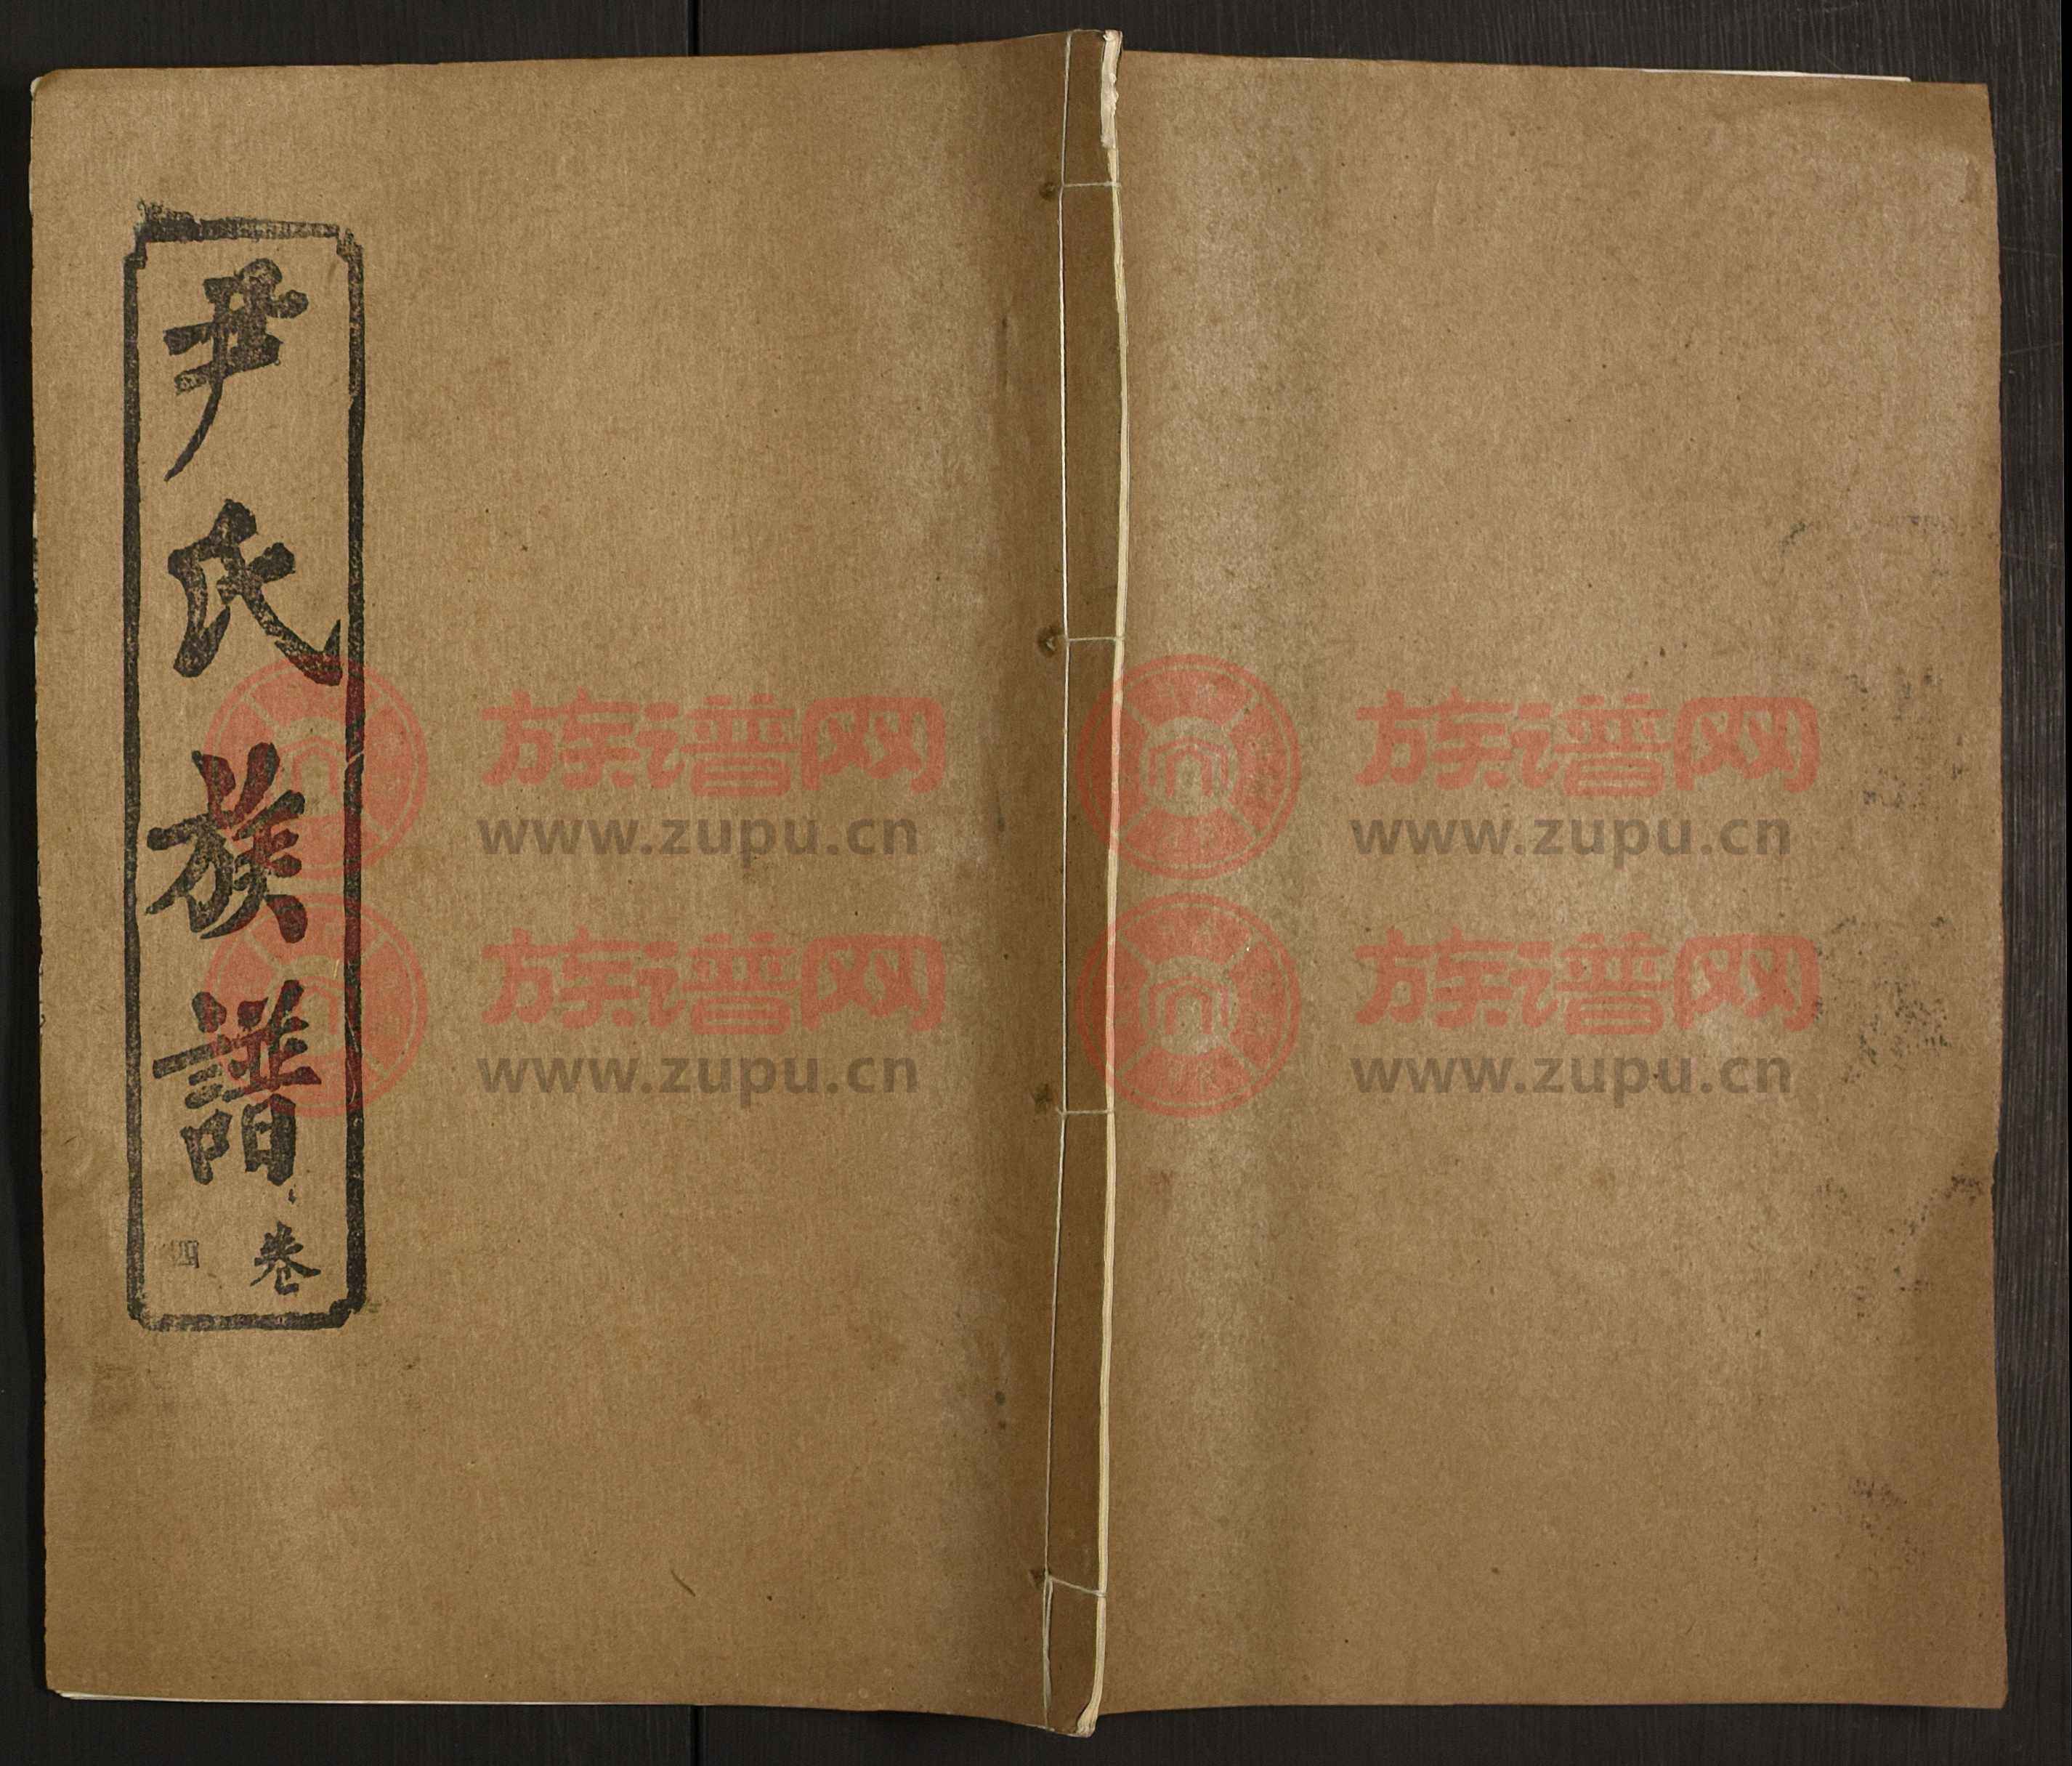 尹氏族譜
卷四
族谱网
www.zupu.cn
族谱网
www.zupu.cn
族谱网
www.zupu.cn
族谱网
www.zupu.cn